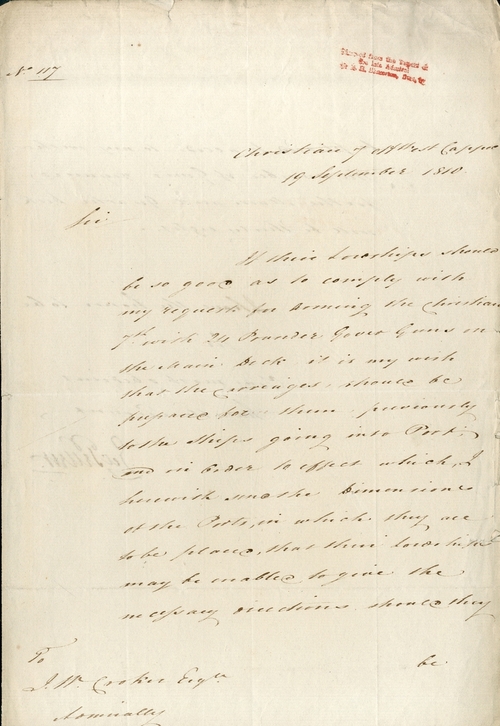 No 117
Christian 7 off West Cappel
19 September 1810
Sir
If their Lordships should
be so good as to comply with
my request for arming the Christian
7th with 24 Pounder Gover Guns on
the Main Deck it is my wish
that the carriages should be
prepared for them previously
to the Ships going into Port;
and in order to effect which, I
herewith send the Dimensions
of the Ports, in which they are
to be placed, that their Lordships
may be enabled to give the
necessary directions should they
be
To
J. W. Croker Esqr.
Admiralty